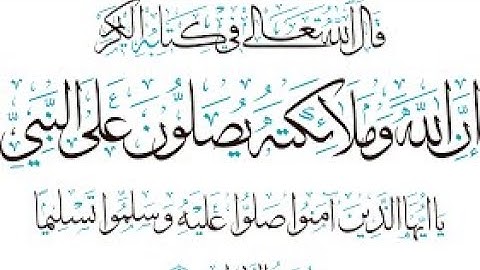 قال الله تعالى في كتابه الكريم
إِنَّ اللَّهَ وَمَلَائِكَتَهُ يُصَلُّونَ عَلَى النَّبِيِّ
يَا أَيُّهَا الَّذِينَ آمَنُوا صَلُّوا عَلَيْهِ وَسَلِّمُوا تَسْلِيمًا